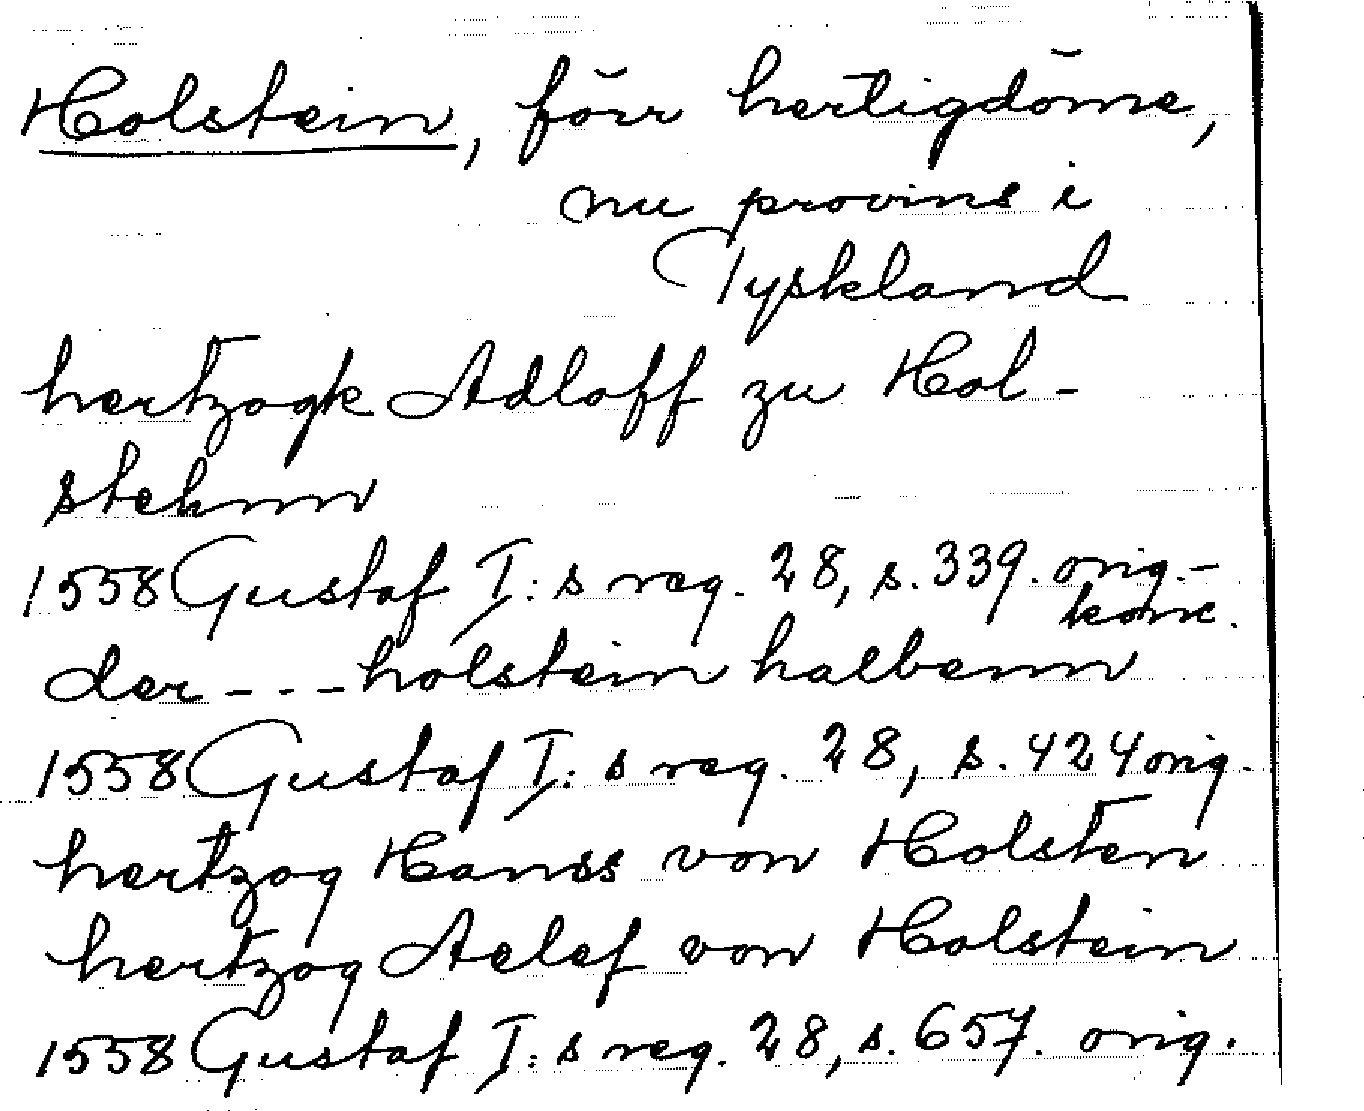 Holstein, förr hertigdöme,
nu provins i
Tyskland
hertzogk Adloff zu Hol-
stehnn
1558 Gustaf I:s reg. 28, s. 339. orig.-
konc.
der - - - holstein halbenn
1558 Gustaf I:s reg. 28, s. 424 orig.
hertzog Hanss von Holsten
hertzog Aelef von Holstein
1558 Gustaf I:s reg. 28, s. 657. orig.